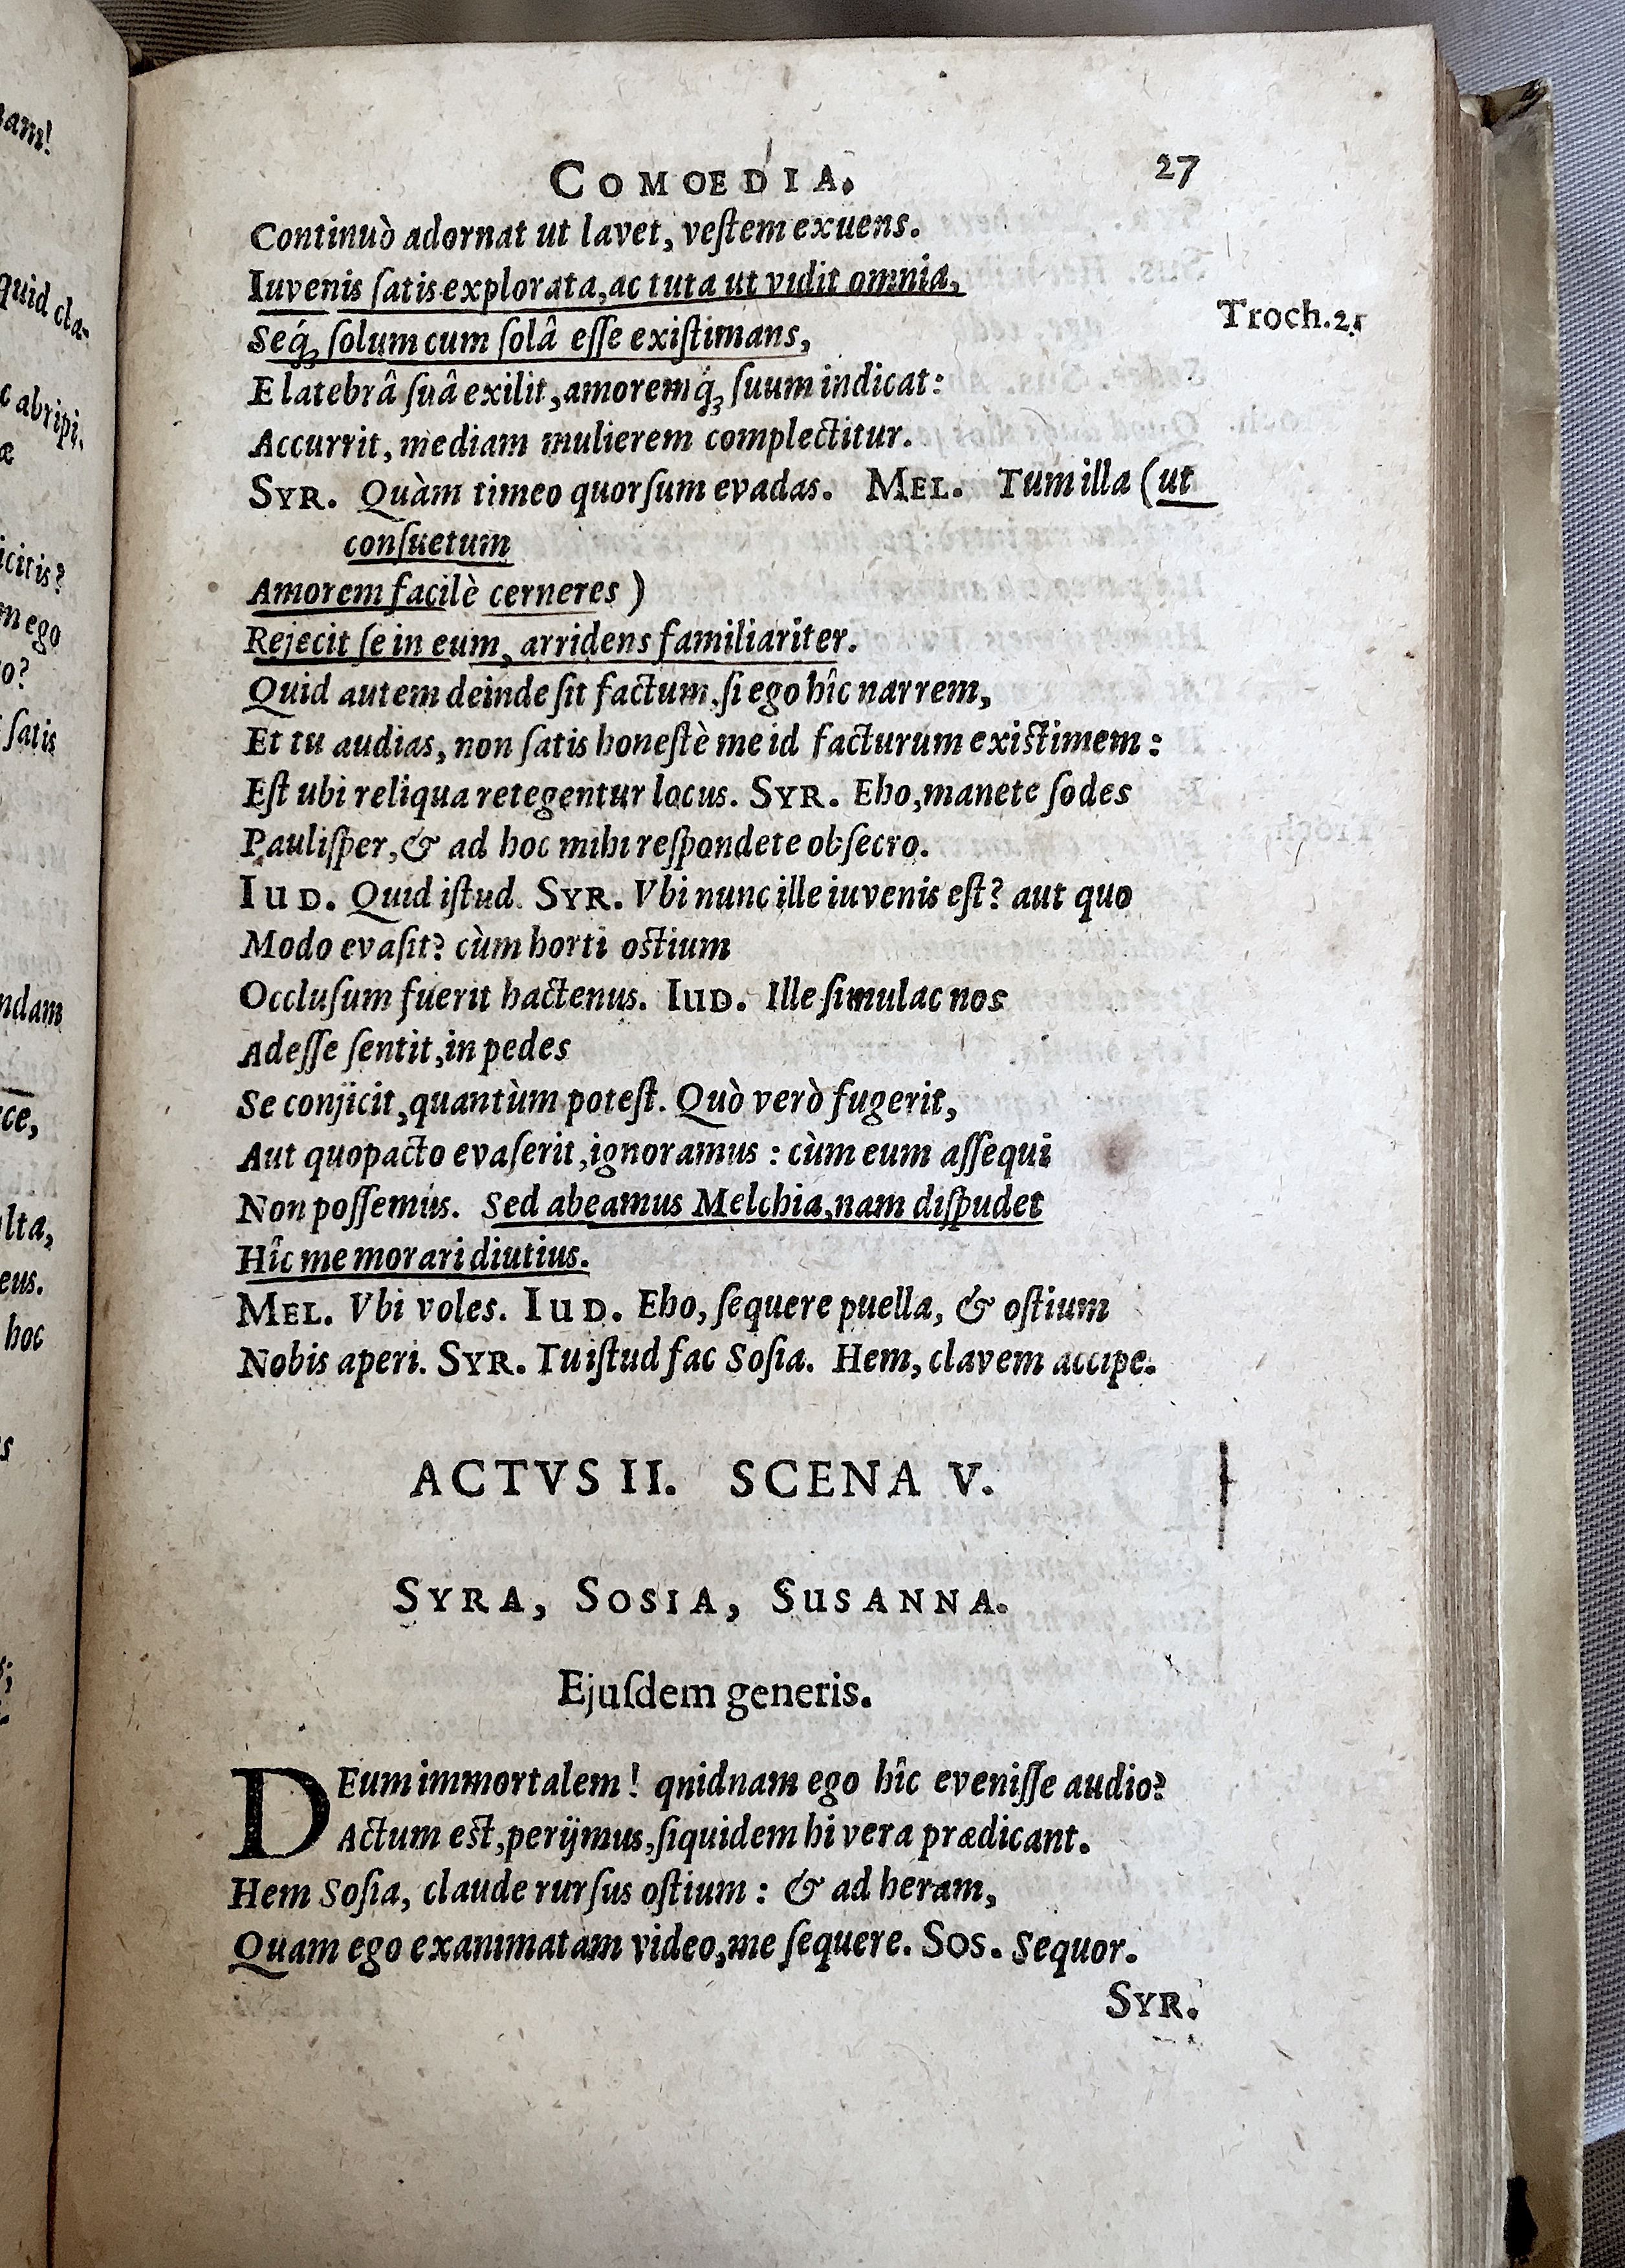 COMOEDIA.
27
Continuò adornat ut lavet, veſtem exuens.
Iuvenis ſatis explorata, ac tuta ut vidit omnia,
Seq́; ſolum cum ſolâ eſſe exiſtimans,
Troch. 2.
E latebrâ ſuâ exilit, amoremq́; ſuum indicat:
Accurrit, mediam mulierem complectitur.
SYR. Quàm timeo quorſum evadas. MEL. Tum illa (ut
conſuetum
Amorem facilè cerneres)
Rejecit ſe in eum, arridens familiariter.
Quid autem deinde ſit factum, ſi ego hîc narrem,
Et tu audias, non ſatis honeſtè me id facturum exiſtimem:
Eſt ubi reliqua retegentur locus. SYR. Eho, manete ſodes
Pauliſper, & ad hoc mihi reſpondete obſecro.
IUD. Quid iſtud. SYR. Vbi nunc ille iuvenis eſt? aut quo
Modo evaſit? cùm horti oſtium
Occluſum fuerit hactenus. IUD. Ille ſimulac nos
Adeſſe ſentit, in pedes
Se conjicit, quantùm poteſt. Quò verò fugerit,
Aut quo pacto evaſerit, ignoramus: cùm eum aſſequi
Non poſſemus. Sed abeamus Melchia, nam diſpudet
Hîc me morari diutius.
MEL. Vbi voles. IUD. Eho, ſequere puella, & oſtium
Nobis aperi. SYR. Tu iſtud fac Soſia. Hem, clavem accipe.
ACTVS II. SCENA V.
SYRA, SOSIA, SUSANNA.
Ejuſdem generis.
DEum immortalem! qnidnam ego hîc eveniſſe audio?
Actum eſt, perijmus, ſiquidem hi vera prædicant.
Hem Soſia, claude rurſus oſtium: & ad heram,
Quam ego exanimatam video, me ſequere. SOS. Sequor.
SYR.
nam!
quid cla-
c abripi.
æ
icitis?
m ego
o?
ſatis
ndam
ce,
lta,
eus.
hoc